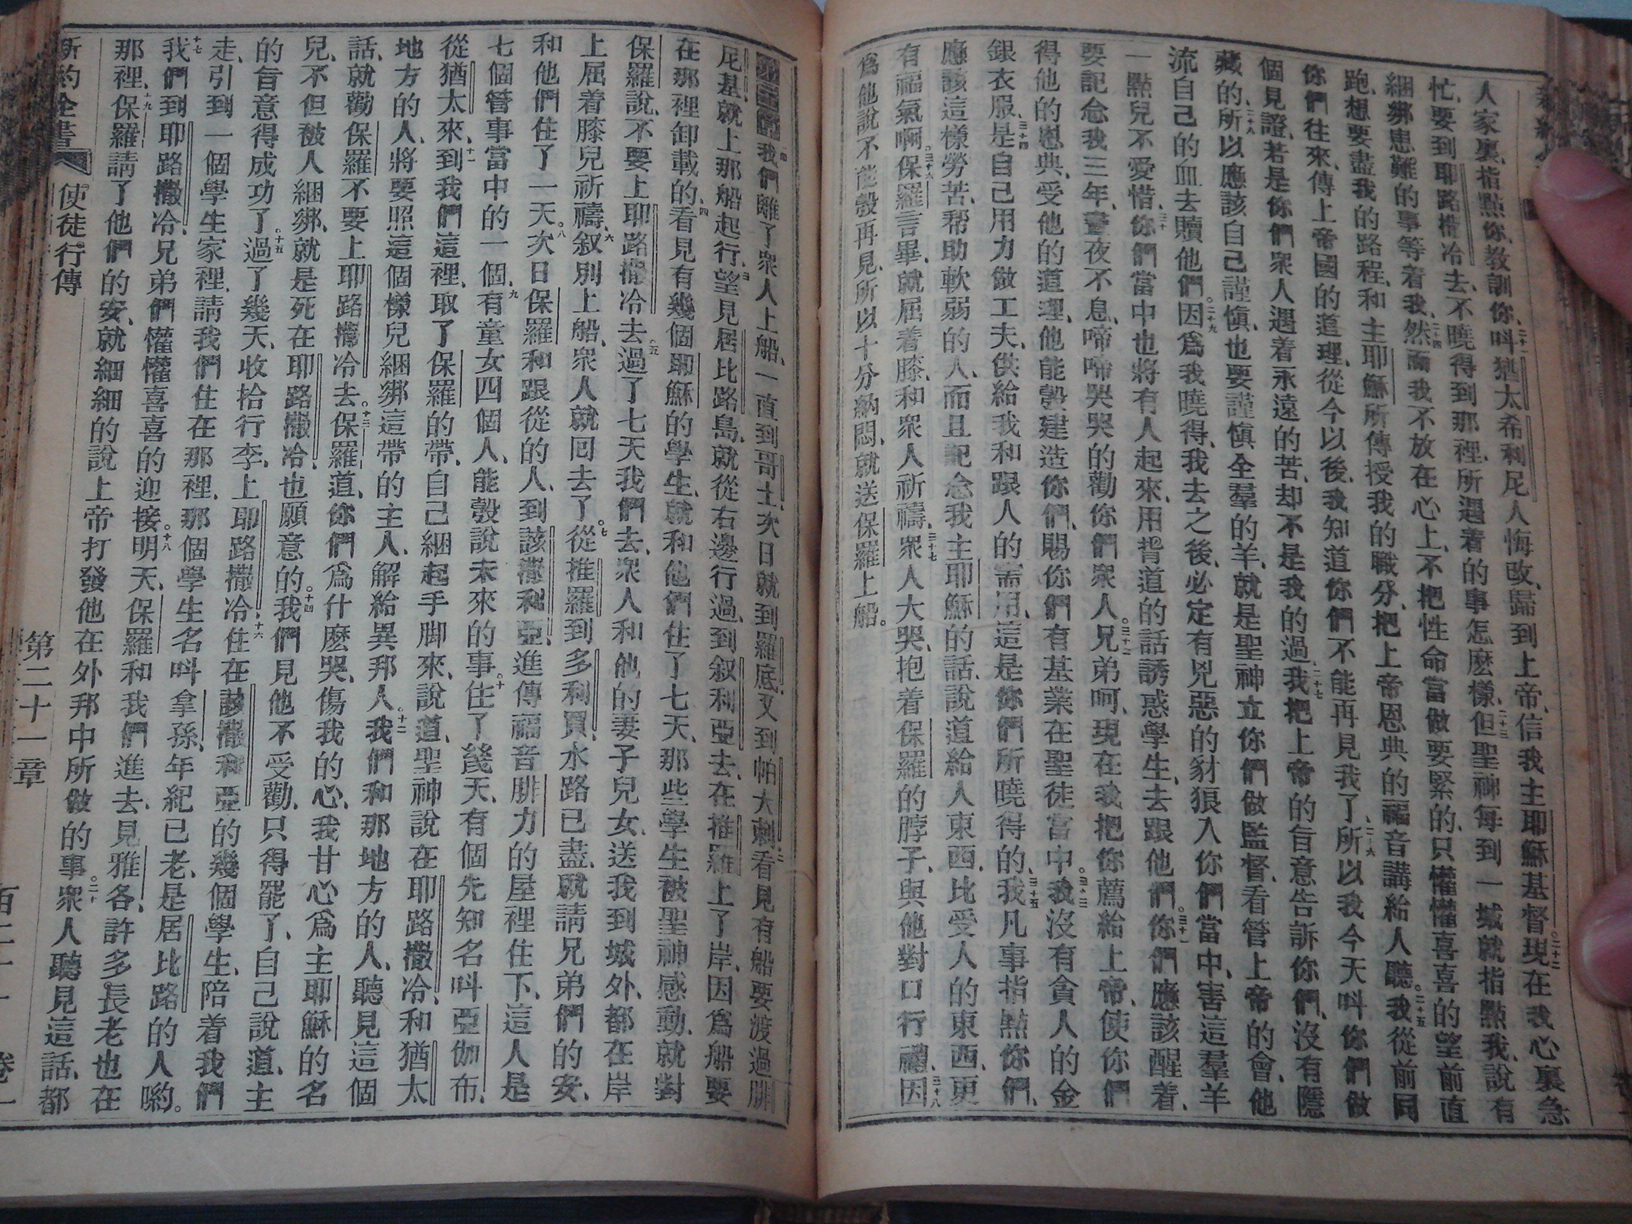 人家裏、指點你、教訓你、叫猶太希利尼人悔改、歸到上帝、信我主耶穌基督。二十二現在我心裏急
忙、要到耶路撒冷去、不曉得到那裡、所遇着的事怎麼樣、二十三但聖神每到一城、就指點我、說有
綑綁患難的事等着我、二十四然而我不放在心上、不把性命當做要緊的、只懽懽喜喜的望前直
跑、想要盡我的路程、和主耶穌所傳授我的職分、把上帝恩典的福音講給人聽。二十五我從前同
你們往來、傳上帝國的道理、從今以後、我知道你們不能再見我了、二十六所以我今天叫你們做
個見證、若是你們衆人遇着永遠的苦、却不是我的過、二十七我把上帝的旨意告訴你們、沒有隱
藏的、二十八所以應該自己謹愼、也要謹愼全羣的羊、就是聖神立你們做監督、看管上帝的會、他
流自己的血去贖他們。二十九因爲我曉得、我去之後、必定有兇惡的豺狼入你們當中、害這羣羊
一點兒不愛惜、三十你們當中也將有人起來、用背道的話誘惑學生、去跟他們。三十一你們應該醒着、
要記念我三年、晝夜不息、啼啼哭哭的勸你們衆人。三十二兄弟呵、現在我把你薦給上帝、使你們
得他的恩典、受他的道理、他能彀建造你們、賜你們有基業在聖徒當中。三十三我沒有貪人的金
銀衣服、三十四是自己用力做工夫、供給我和跟人的需用、這是你們所曉得的、三十五我凡事指點你們、
應該這樣勞苦、帮助軟弱的人、而且記念我主耶穌的話、說道給人東西、比受人的東西、更
有福氣啊、三十六保羅言畢、就屈着膝、和衆人祈禱、三十七衆人大哭、抱着保羅的脖子、與他對口行禮、三十八因
爲他說不能彀再見、所以十分納悶、就送保羅上船。
我們離了衆人上船、一直到哥士、次日就到羅底、又到帕大剌、二看見有船要渡過腓
尼基、就上那船起行、三望見居比路島、就從右邊行過、到叙利亞去、在推羅上了岸、因爲船要
在那裡卸載的、四看見有幾個耶穌的學生、就和他們住了七天、那些學生被聖神感動、就對
保羅說、不要上耶路撒冷去。五過了七天、我們去、衆人和他的妻子兒女、送我到城外、都在岸
上屈着膝兒祈禱、六叙別上船、衆人就回去了。七從推羅到多利買、水路已盡、就請兄弟們的安、
和他們住了一天。八次日保羅和跟從的人、到該撒利亞、進傳福音腓力的屋裡住下、這人是
七個管事當中的一個、九有童女四個人、能彀說未來的事、十住了幾天、有個先知名叫亞伽布、
從猶太來、十一到我們這裡、取了保羅的帶、自己綑起手脚來、說道、聖神說在耶路撒冷、和猶太
地方的人、將要照這個樣兒綑綁這帶的主人、解給異邦人、十二我們和那地方的人、聽見這個
話、就勸保羅不要上耶路撒冷去。十三保羅道、你們爲什麽哭、傷我的心、我甘心爲主耶穌的名
兒、不但被人綑綁、就是死在耶路撒冷、也願意的、十四我們見他不受勸、只得罷了、自己說道、主
的旨意得成功了。十五過了幾天、收拾行李、上耶路撒冷、十六住在該撒利亞的幾個學生、陪着我們
走、引到一個學生家裡、請我們住在那裡、那個學生名叫拿孫、年紀已老、是居比路的人喲。
十七我們到耶路撒冷、兄弟們懽懽喜喜的迎接。十八明天、保羅和我們進去、見雅各、許多長老也在
那裡、十九保羅請了他們的安、就細細的說上帝打發他在外邦中所做的事、二十衆人聽見這話、都
新約全書 使徒行傳 第二十一章